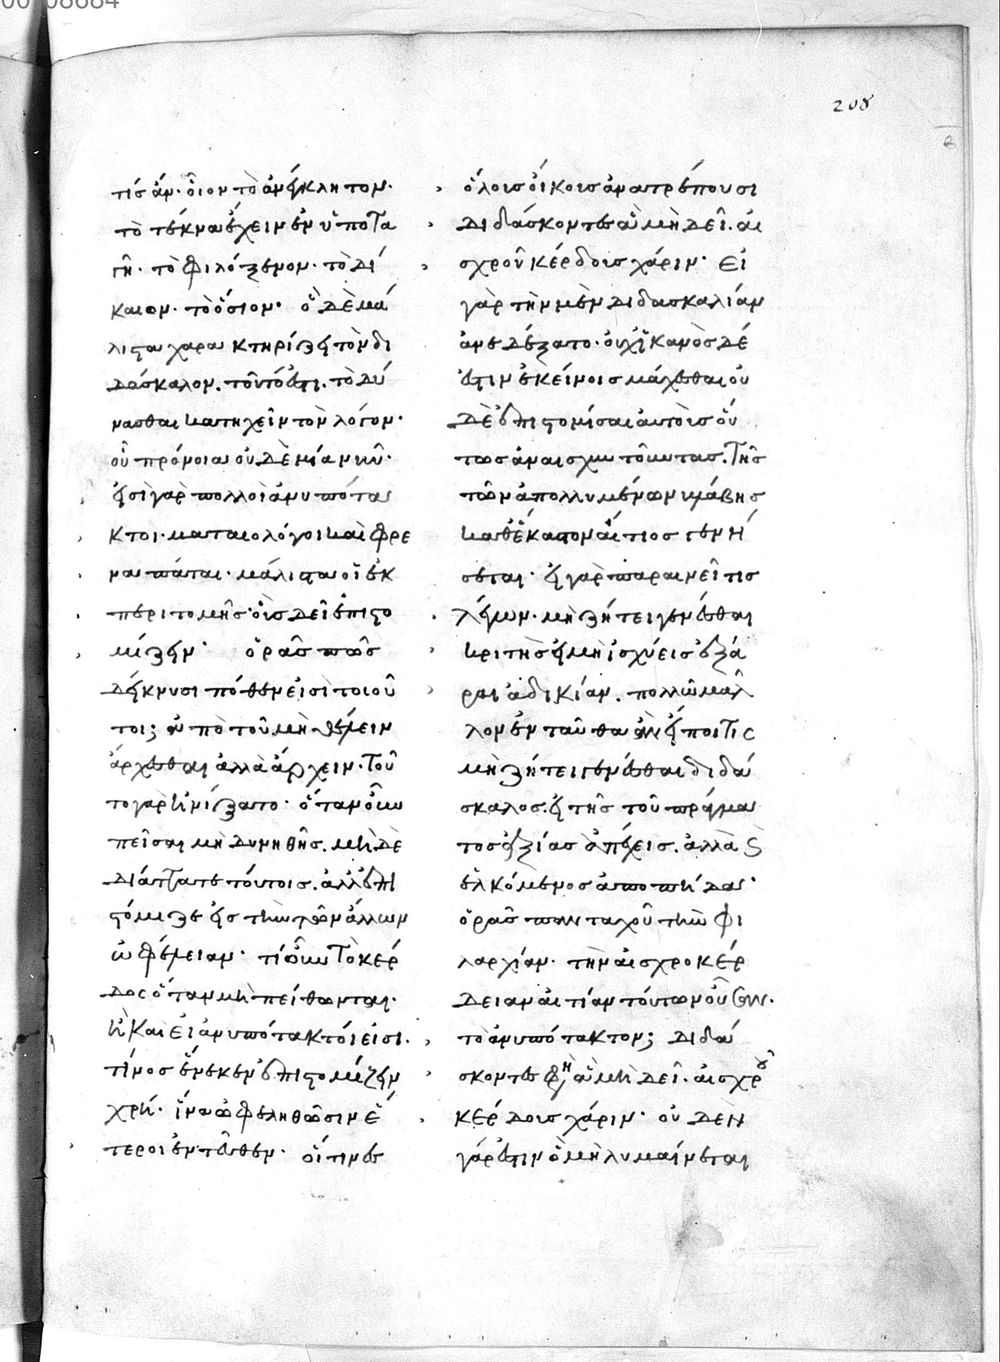 208
τίς ἀν· οἷον τὸ ἀνέγκλητον·
τὸ τέκνα ἔχειν ἐν ὑποτα
γῆ· τὸ φιλόξενον· τὸ δί
καιον· τὸ ὅσιον· ὃ δὲ μά
λιστα χαρακτηρίζει τὸν δι
δάσκαλον, τοῦτό ἐστι, τὸ δύ
νασθαι κατηχεῖν τὸν λόγον·
οὗ πρόνοια οὐδὲ μία νῦν·
εἰσὶ γὰρ πολλοὶ ἀνυπότα
κτοι· ματαιολόγοι καὶ φρε
ναπάται· μάλιστα οἱ ἐκ
περιτομῆς· οἷς δεῖ ἐπιστο
μίζειν· ὁρᾶς πῶς
δείκνυσι πόθεν εἰσὶ τοιοῦ
τοι; ἀπὸ τοῦ μὴ θέλειν
ἄρχεσθαι ἀλλὰ ἄρχειν· τοῦ
το γὰρ ᾐνίξατο· ὅταν οὖν
πεῖσαι μὴ δυνηθῆς, μὴ δὲ
διάταττε τούτοις, ἀλλ' ἐπι
στόμιζε εἰς τὴν τῶν ἄλλων
ὠφέλειαν· τί οὖν τὸ κέρ
δος ὅταν μὴ πείθωνται·
ἢ καὶ εἰ ἀνυπότακτοι εἰσι·
τίνος ἕνεκεν ἐπιστομίζειν
χρή· ἵνα ὠφεληθῶσιν ἕ
τεροι ἐντεῦθεν· οἵτινες
ὅλους οἴκους ἀνατρέπουσι
διδάσκοντες ἃ μὴ δεῖ· αἰ
σχροῦ κέρδους χάριν· εἰ
γὰρ τὴν μὲν διδασκαλίαν
ἀνεδέξατο· οὐχ ἱκανὸς δέ
ἐστιν ἐκείνοις μάχεσθαι οὐ
δὲ ἐπιστομίσαι αὐτοὺς οὕ
τως ἀναισχυντοῦντας, τῆς
τῶν ἀπολλυμένων λύμης
καθ' ἕκαστον αἴτιος γενή
σεται· εἰ γὰρ παραινεῖ τις
λέγων· μὴ ζήτει γενέσθαι
κριτὴς εἰ μὴ ἰσχύεις ἐξᾶ
ραι ἀδικίαν, πολλῶ μᾶλ
λον ἐνταῦθα ἂν εἴποι τις
μὴ ζήτει γενέσθαι διδά
σκαλος, εἰ τῆς τοῦ πράγμα
τος ἀξίας ἀπέχεις, ἀλλὰ καὶ
ἑλκόμενος ἀποπήδα·
ὁρᾶς πανταχοῦ τὴν φι
λαρχίαν· τὴν αἰσχροκέρ
δειαν αἰτίαν τούτων οὖσαν·
τὸ ἀνυπότακτον; διδά
σκοντες φησὶν ἃ μὴ δεῖ· αἰσχροῦ
κέρδους χάριν· οὐδὲν
γάρ ἐστιν ὃ μὴ λυμαίνεται